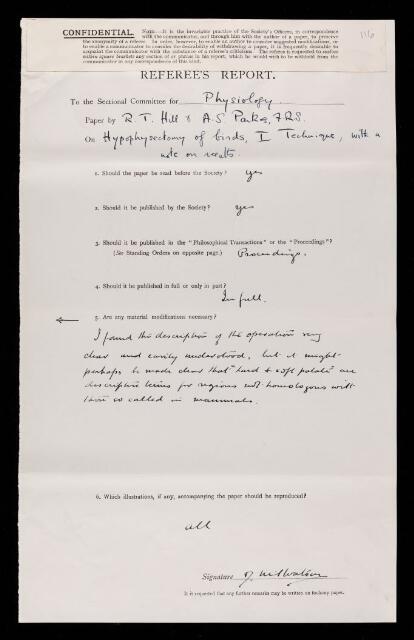 CONFIDENTIAL. NOTE.—It is the invariable practice of the Society's Officers, in correspondence
with the communicator, and through him with the author of a paper, to preserve
the anonymity of a referee. In order, however, to enable an author to consider suggested modifications, or
to enable a communicator to consider the desirability of withdrawing a paper, it is frequently desirable to
acquaint the communicator with the substance of a referee's criticisms. The referee is requested to enclose
within square brackets any section of or phrase in his report, which he would wish to be withheld from the
communicator in any correspondence of this kind.
116
REFEREE'S REPORT.
To the Sectional Committee for Physiology
Paper by R. T. Hill & A. S. Parkes, FRS.
On Hypophysectomy of birds, I Technique, with a
note on results.
1. Should the paper be read before the Society? Yes
2. Should it be published by the Society? Yes
3. Should it be published in the "Philosophical Transactions" or the "Proceedings"?
(See Standing Orders on opposite page.) Proceedings.
4. Should it be published in full or only in part?
In full.
5. Are any material modifications necessary?
I found this description of the operation very
clear and easily understood, but it might
perhaps be made clear that "hard & soft palate" are
descriptive terms for regions not homologous with
those so called in mammals.
6. Which illustrations, if any, accompanying the paper should be reproduced?
all
Signature D. M. S. Watson
It is requested that any further remarks may be written on foolscap paper.